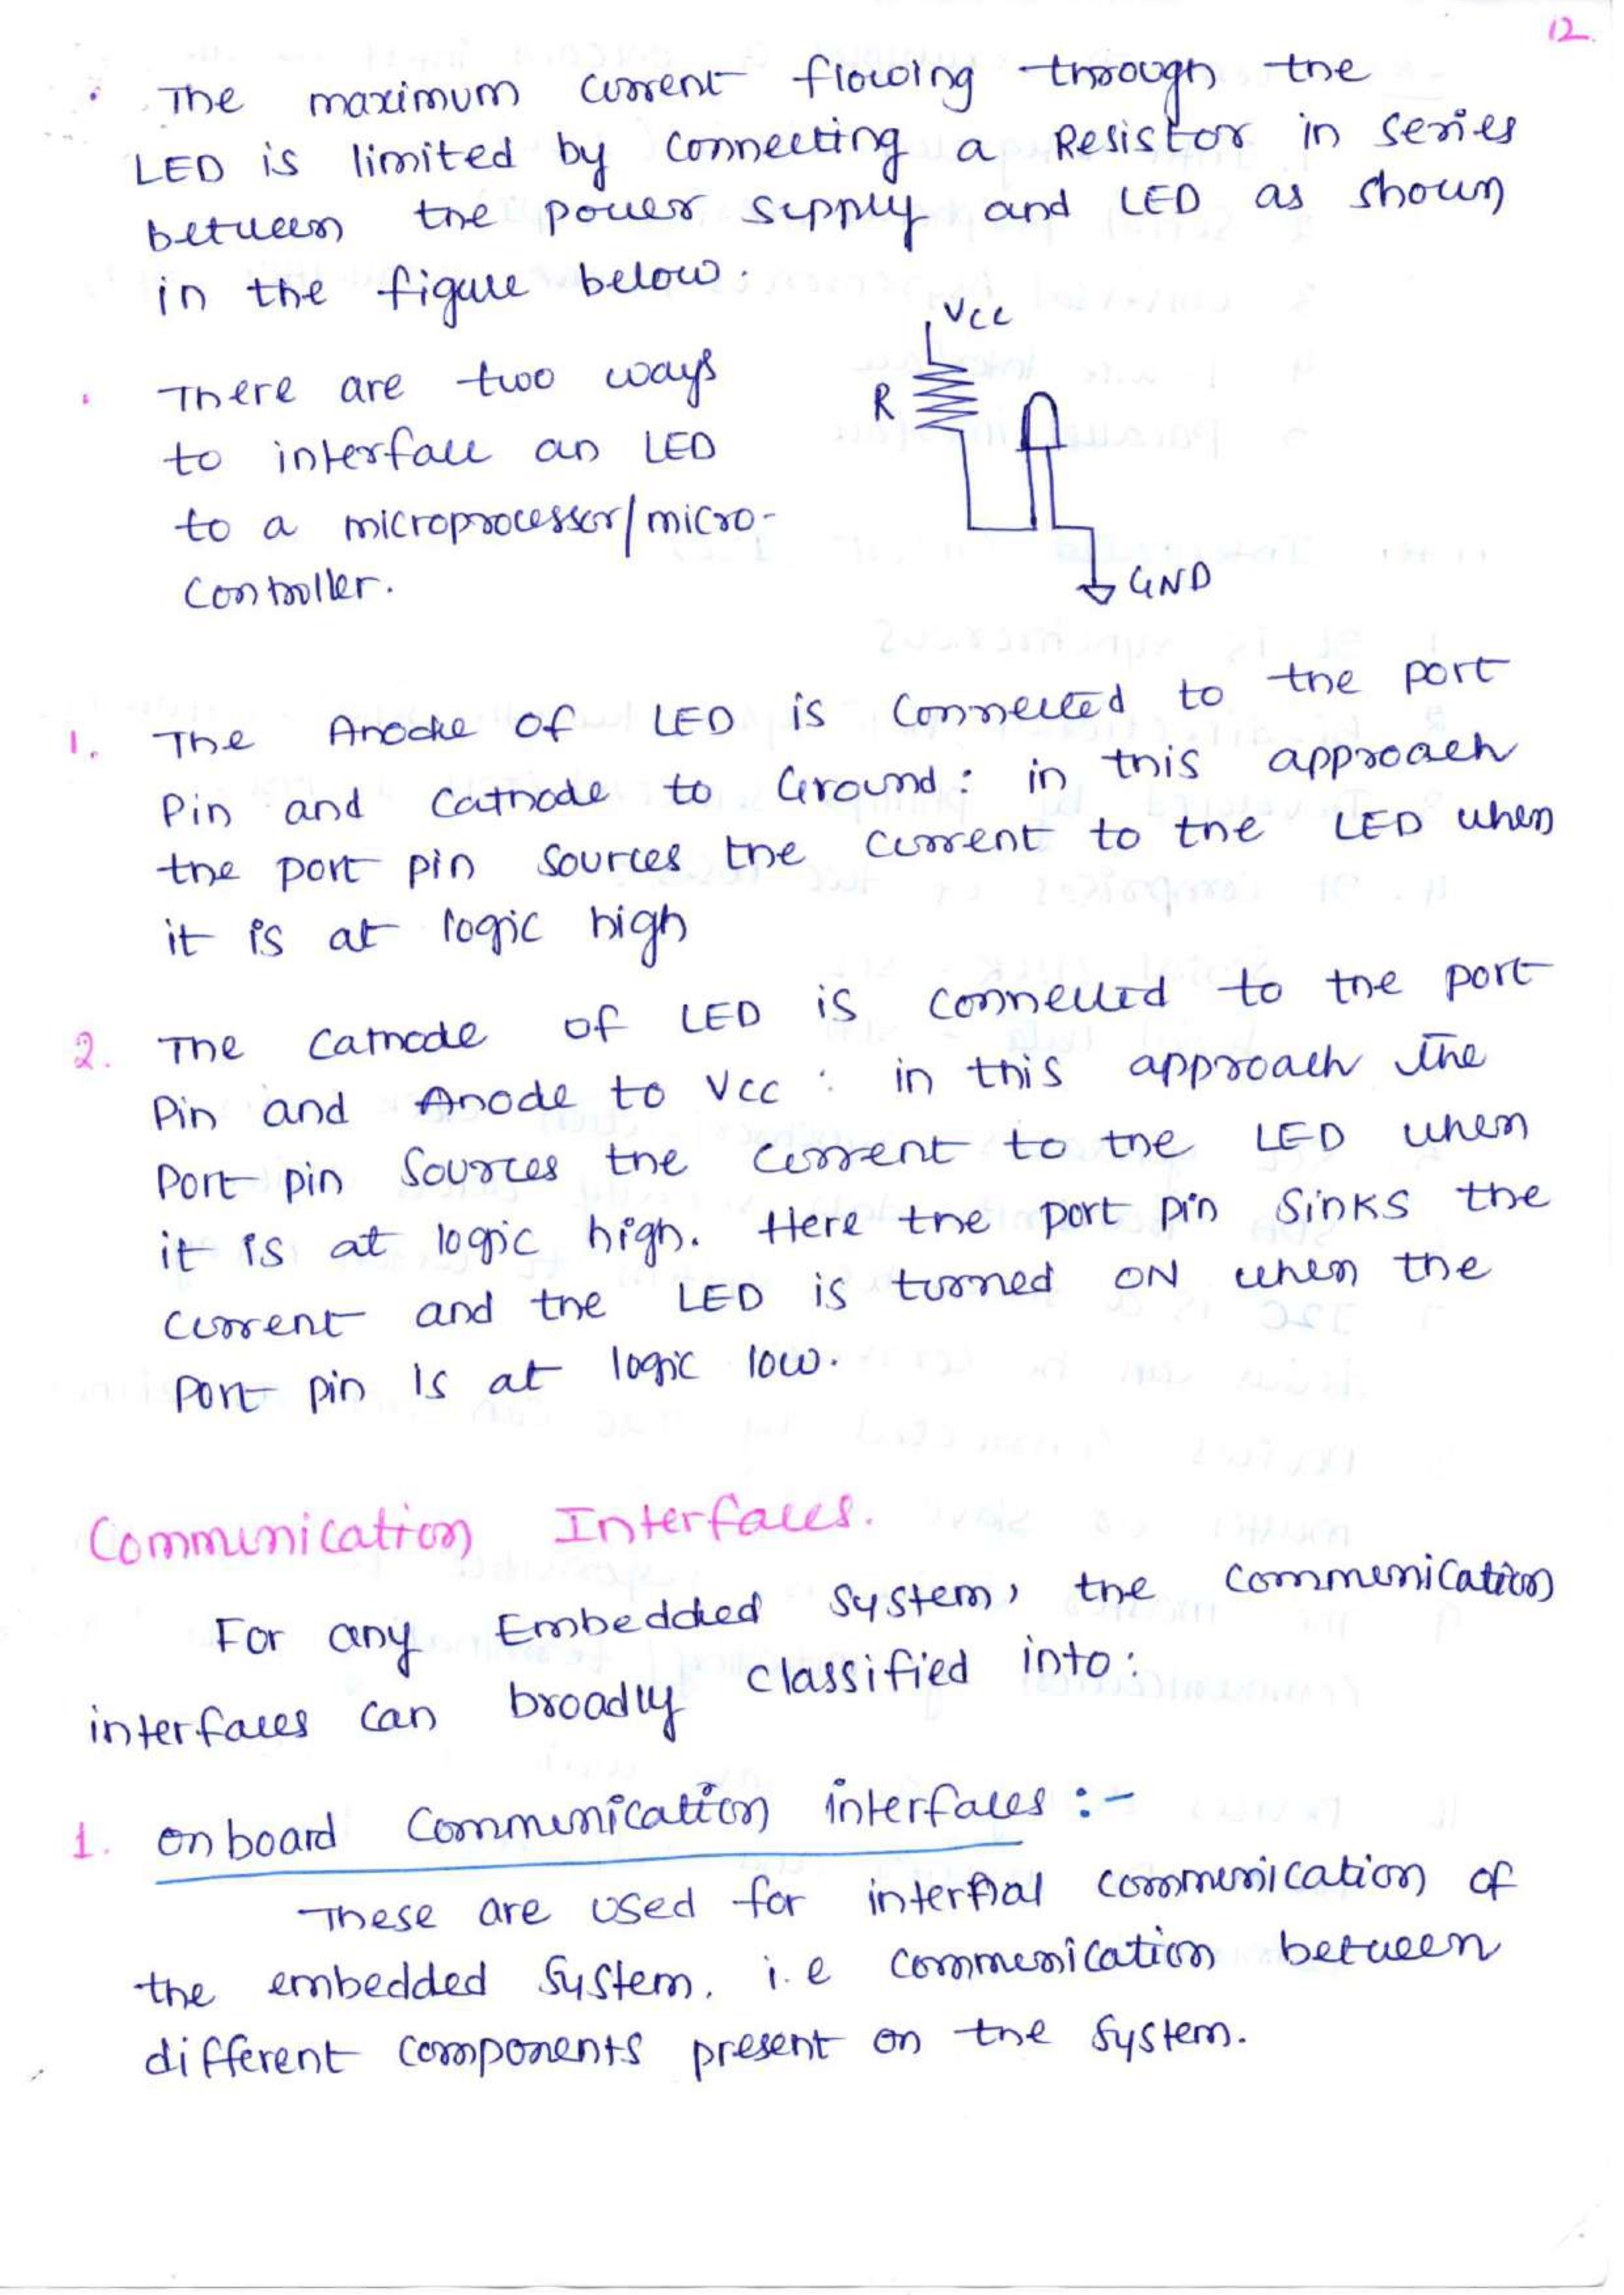 12
The maximum current flowing through the
LED is limited by connecting a Resistor in series
between the power supply and LED as shown
in the figure below.
Vcc
R
GND
There are two ways
to interface an LED
to a microprocessor/micro-
Controller.
1. The Anode of LED is Connected to the port
Pin and Cathode to Ground: in this approach
the port pin sources the current to the LED when
it is at logic high
2. The Cathode of LED is connected to the port
Pin and Anode to Vcc: in this approach the
Port pin Sources the Current to the LED when
it is at logic high. Here the port pin Sinks the
Current and the LED is turned ON when the
Port pin Is at logic low.
Communication Interfaces.
For any Embedded System, the communication
interfaces can broadly classified into:
1. on board Communication interfaces :-
These are used for internal communication of
the embedded System. i.e communication between
different components present on the System.